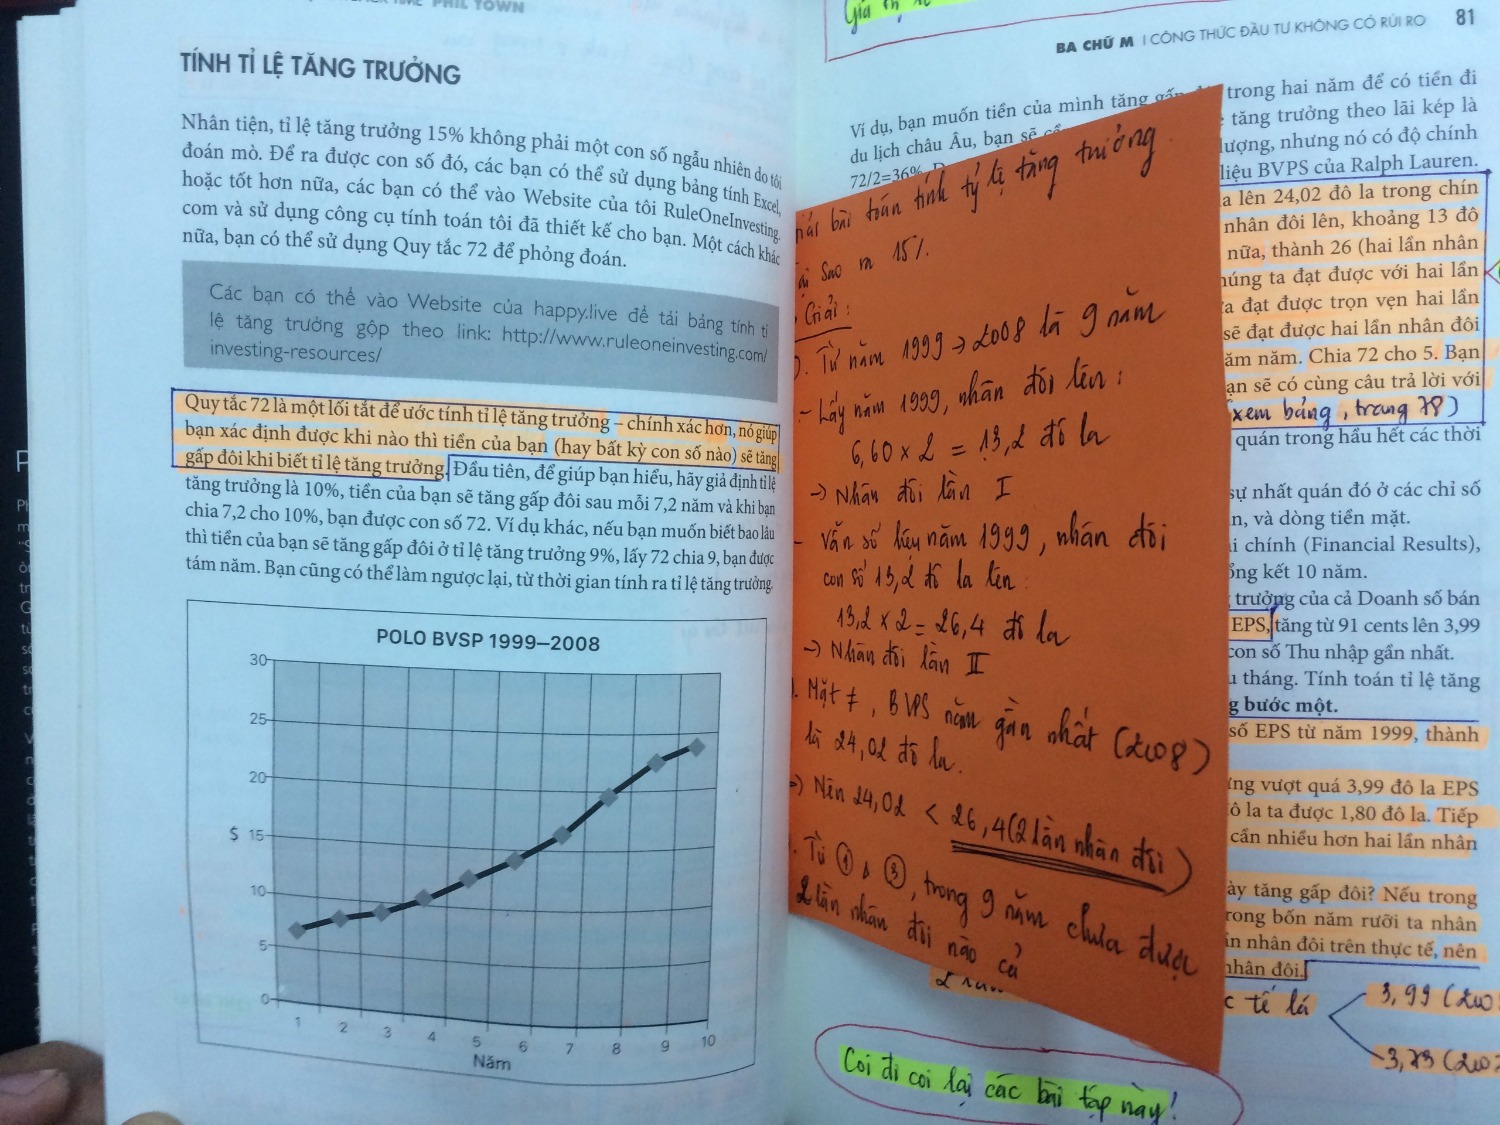 PHIL TOWN
TÍNH TỈ LỆ TĂNG TRƯỞNG
Nhân tiện, tỉ lệ tăng trưởng 15% không phải một con số ngẫu nhiên do tôi
đoán mò. Để ra được con số đó, các bạn có thể sử dụng bảng tính Excel,
hoặc tốt hơn nữa, các bạn có thể vào Website của tôi RuleOneInvesting.
com và sử dụng công cụ tính toán tôi đã thiết kế cho bạn. Một cách khác
nữa, bạn có thể sử dụng Quy tắc 72 để phỏng đoán.
Các bạn có thể vào Website của happy.live để tải bảng tính tỉ
lệ tăng trưởng gộp theo link: http://www.ruleoneinvesting.com/
investing-resources/
Quy tắc 72 là một lối tắt để ước tính tỉ lệ tăng trưởng – chính xác hơn, nó giúp
bạn xác định được khi nào thì tiền của bạn (hay bất kỳ con số nào) sẽ tăng
gấp đôi khi biết tỉ lệ tăng trưởng. Đầu tiên, để giúp bạn hiểu, hãy giả định tỉ lệ
tăng trưởng là 10%, tiền của bạn sẽ tăng gấp đôi sau mỗi 7,2 năm và khi bạn
chia 7,2 cho 10%, bạn được con số 72. Ví dụ khác, nếu bạn muốn biết bao lâu
thì tiền của bạn sẽ tăng gấp đôi ở tỉ lệ tăng trưởng 9%, lấy 72 chia 9, bạn được
tám năm. Bạn cũng có thể làm ngược lại, từ thời gian tính ra tỉ lệ tăng trưởng.
POLO BVSP 1999–2008
30
25
20
$ 15
10
5
0
1 2 3 4 5 6 7 8 9 10
Năm
BA CHỮ M | CÔNG THỨC ĐẦU TƯ KHÔNG CÓ RỦI RO 81
Ví dụ, bạn muốn tiền của mình tăng gấp trong hai năm để có tiền đi
du lịch châu Âu, bạn sẽ tăng trưởng theo lãi kép là
72/2=36%. lượng, nhưng nó có độ chính
liệu BVPS của Ralph Lauren.
lên 24,02 đô la trong chín
nhân đôi lên, khoảng 13 đô
nữa, thành 26 (hai lần nhân
chúng ta đạt được với hai lần
đạt được trọn vẹn hai lần
sẽ đạt được hai lần nhân đôi
năm năm. Chia 72 cho 5. Bạn
bạn sẽ có cùng câu trả lời với
(xem bảng, trang 78)
quán trong hầu hết các thời
sự nhất quán đó ở các chỉ số
và dòng tiền mặt.
chính (Financial Results),
tổng kết 10 năm.
trưởng của cả Doanh số bán
EPS, tăng từ 91 cents lên 3,99
con số Thu nhập gần nhất.
tháng. Tính toán tỉ lệ tăng
bước một.
số EPS từ năm 1999, thành
vượt quá 3,99 đô la EPS
đô la ta được 1,80 đô la. Tiếp
cần nhiều hơn hai lần nhân
tăng gấp đôi? Nếu trong
trong bốn năm rưỡi ta nhân
nhân đôi trên thực tế, nên
nhân đôi.
tế là
3,99
3,73
bài toán tính tỷ lệ tăng trưởng
Sao ra 15%.
Giải:
Từ năm 1999 → 2008 là 9 năm
- Lấy năm 1999, nhân đôi lên:
6,60 x 2 = 13,2 đô la
→ Nhân đôi lần I
- Vẫn số liệu năm 1999, nhân đôi
con số 13,2 đô la lên:
13,2 x 2 = 26,4 đô la
→ Nhân đôi lần II
Mặt ≠, BVPS năm gần nhất (2008)
là 24,02 đô la.
→ Nên 24,02 < 26,4 (2 lần nhân đôi)
Từ ① & ③, trong 9 năm chưa được
2 lần nhân đôi nào cả
Coi đi coi lại các bài tập này!